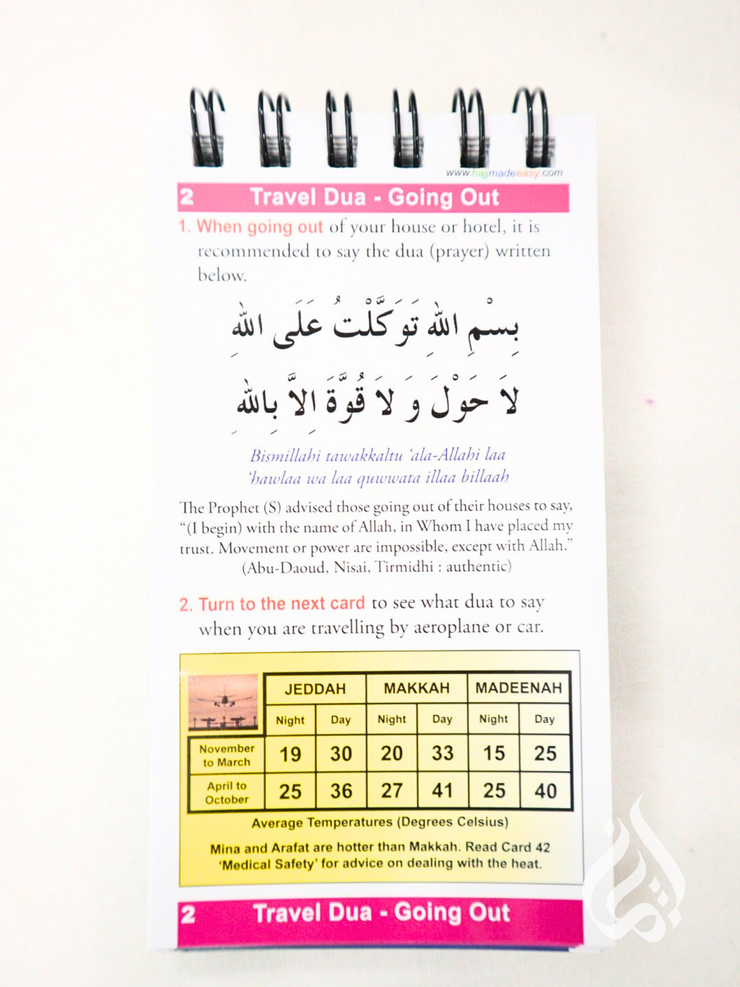 www.hajjmadeeasy.com
2 Travel Dua - Going Out
1. When going out of your house or hotel, it is
recommended to say the dua (prayer) written
below.
بِسْمِ اللهِ تَوَكَّلْتُ عَلَى اللهِ
لاَ حَوْلَ وَ لاَ قُوَّةَ اِلاَّ بِاللهِ
Bismillahi tawakkaltu ‘ala-Allahi laa
‘hawlaa wa laa quwwata illaa billaah
The Prophet (S) advised those going out of their houses to say,
“(I begin) with the name of Allah, in Whom I have placed my
trust. Movement or power are impossible, except with Allah.”
(Abu-Daoud, Nisai, Tirmidhi : authentic)
2. Turn to the next card to see what dua to say
when you are travelling by aeroplane or car.
JEDDAH MAKKAH MADEENAH
Night Day Night Day Night Day
November to March 19 30 20 33 15 25
April to October 25 36 27 41 25 40
Average Temperatures (Degrees Celsius)
Mina and Arafat are hotter than Makkah. Read Card 42
‘Medical Safety’ for advice on dealing with the heat.
2 Travel Dua - Going Out